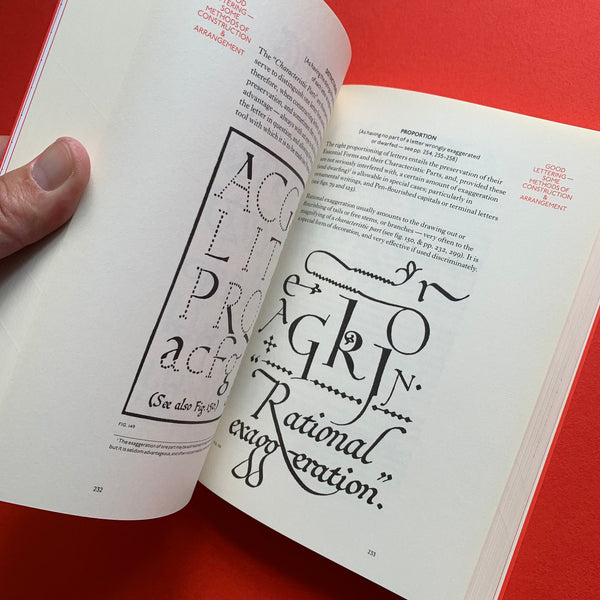 GOOD
LETTERING —
SOME
METHODS OF
CONSTRUCTION
&
ARRANGEMENT
The "Characteristic Parts,"
serve to distinguish one
therefore, when constructing
preservation, and sometimes
advantage — always with
the letter in question, and
tool with which it is to be
ACG
LIT
PRQ
acfg
(See also Fig. 150)
FIG. 149
¹ The exaggeration of one part may be
but it is seldom advantageous, and often
232
PROPORTION
(As having no part of a letter wrongly exaggerated
or dwarfed — see pp. 254, 255–258)
The right proportioning of letters entails the preservation of their
Essential Forms and their Characteristic Parts, and, provided these
are not seriously interfered with, a certain amount of exaggeration
(and dwarfing) is allowable in special cases; particularly in
ornamental writings, and Pen-flourished capitals or terminal letters
(see figs 79 and 125).
Rational exaggeration usually amounts to the drawing out or
flourishing of tails or free stems, or branches — very often to the
magnifying of a characteristic part (see fig. 150, & pp. 232, 299). It is
a special form of decoration, and very effective if used discriminately.
GOOD
LETTERING —
SOME
METHODS OF
CONSTRUCTION
&
ARRANGEMENT
AGRJN.
"Rational
exagg-eration."
233